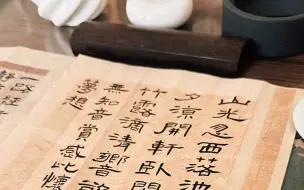 山光忽西落池
夕涼開軒臥閒
竹露滴清響
無知音賞感此懷
夢想